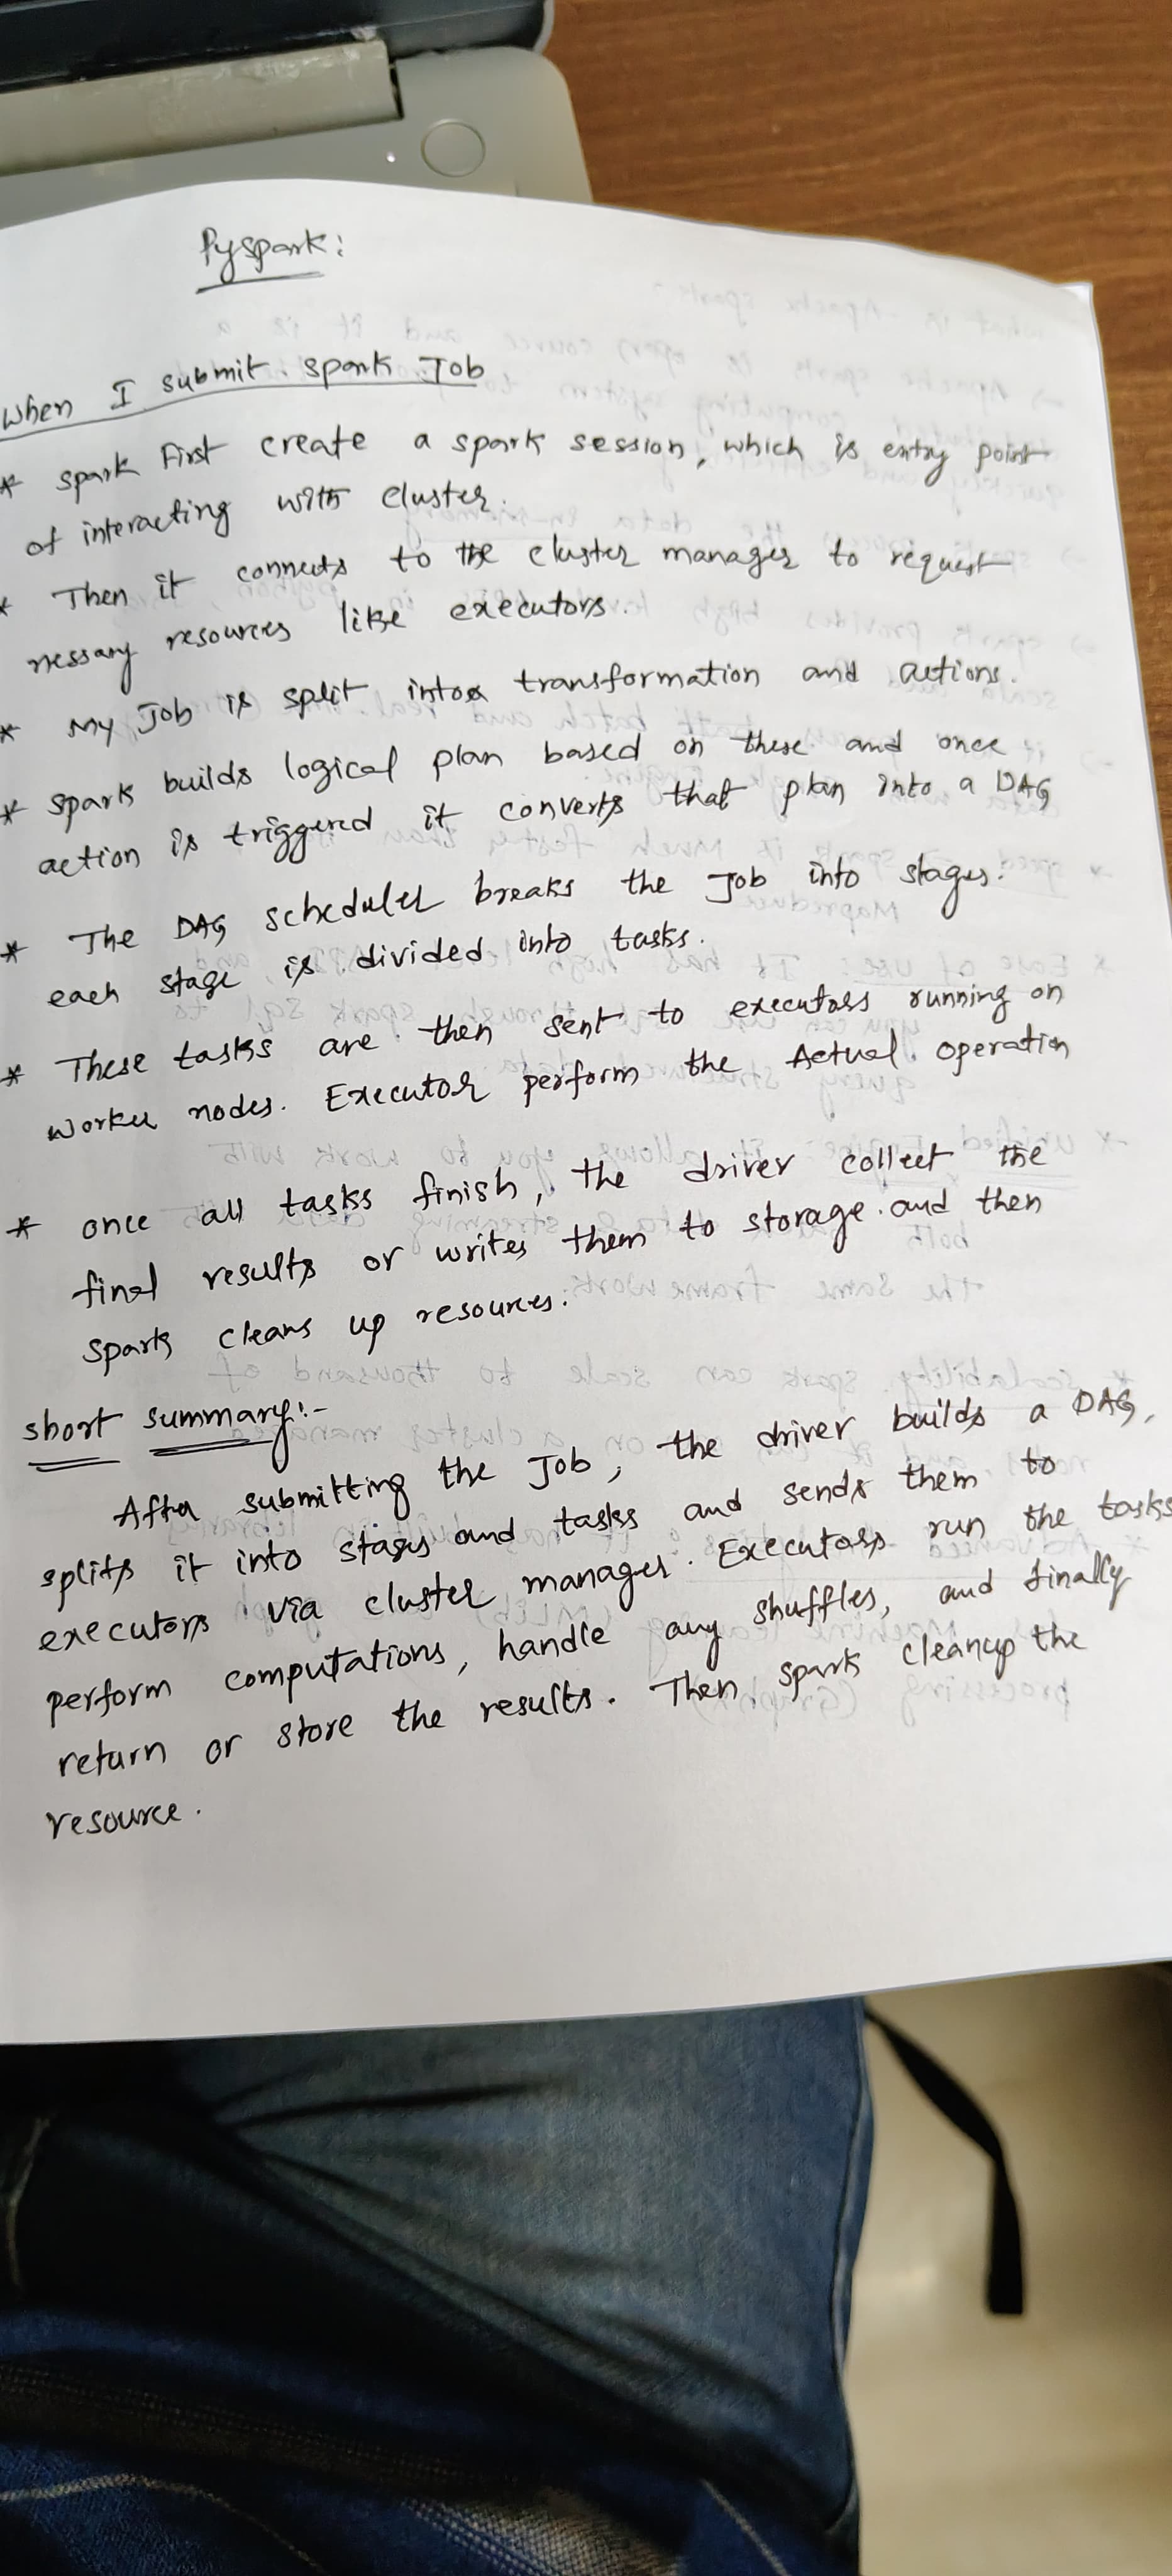 Pyspark:
When I submit spark Job
* spark First create a spark session, which is entry point
of interacting with cluster.
* Then it connects to the cluster manager to request
nessary resources like executors.
* My Job is split into transformation and actions.
* spark builds logical plan based on these and once
action is triggered it converts that plan into a DAG
* The DAG scheduler breaks the Job into stages.
each stage is divided into tasks.
* These tasks are then sent to executors running on
worker nodes. Executor perform the Actual operation
* once all tasks finish, the driver collect the
final results or writes them to storage and then
spark cleans up resources.
short summary:-
After submitting the Job, the driver builds a DAG,
splits it into stages and tasks and sends them to
executors via cluster manager. Executors run the tasks
perform computations, handle any shuffles, and finally
return or store the results. Then spark cleanup the
resource.